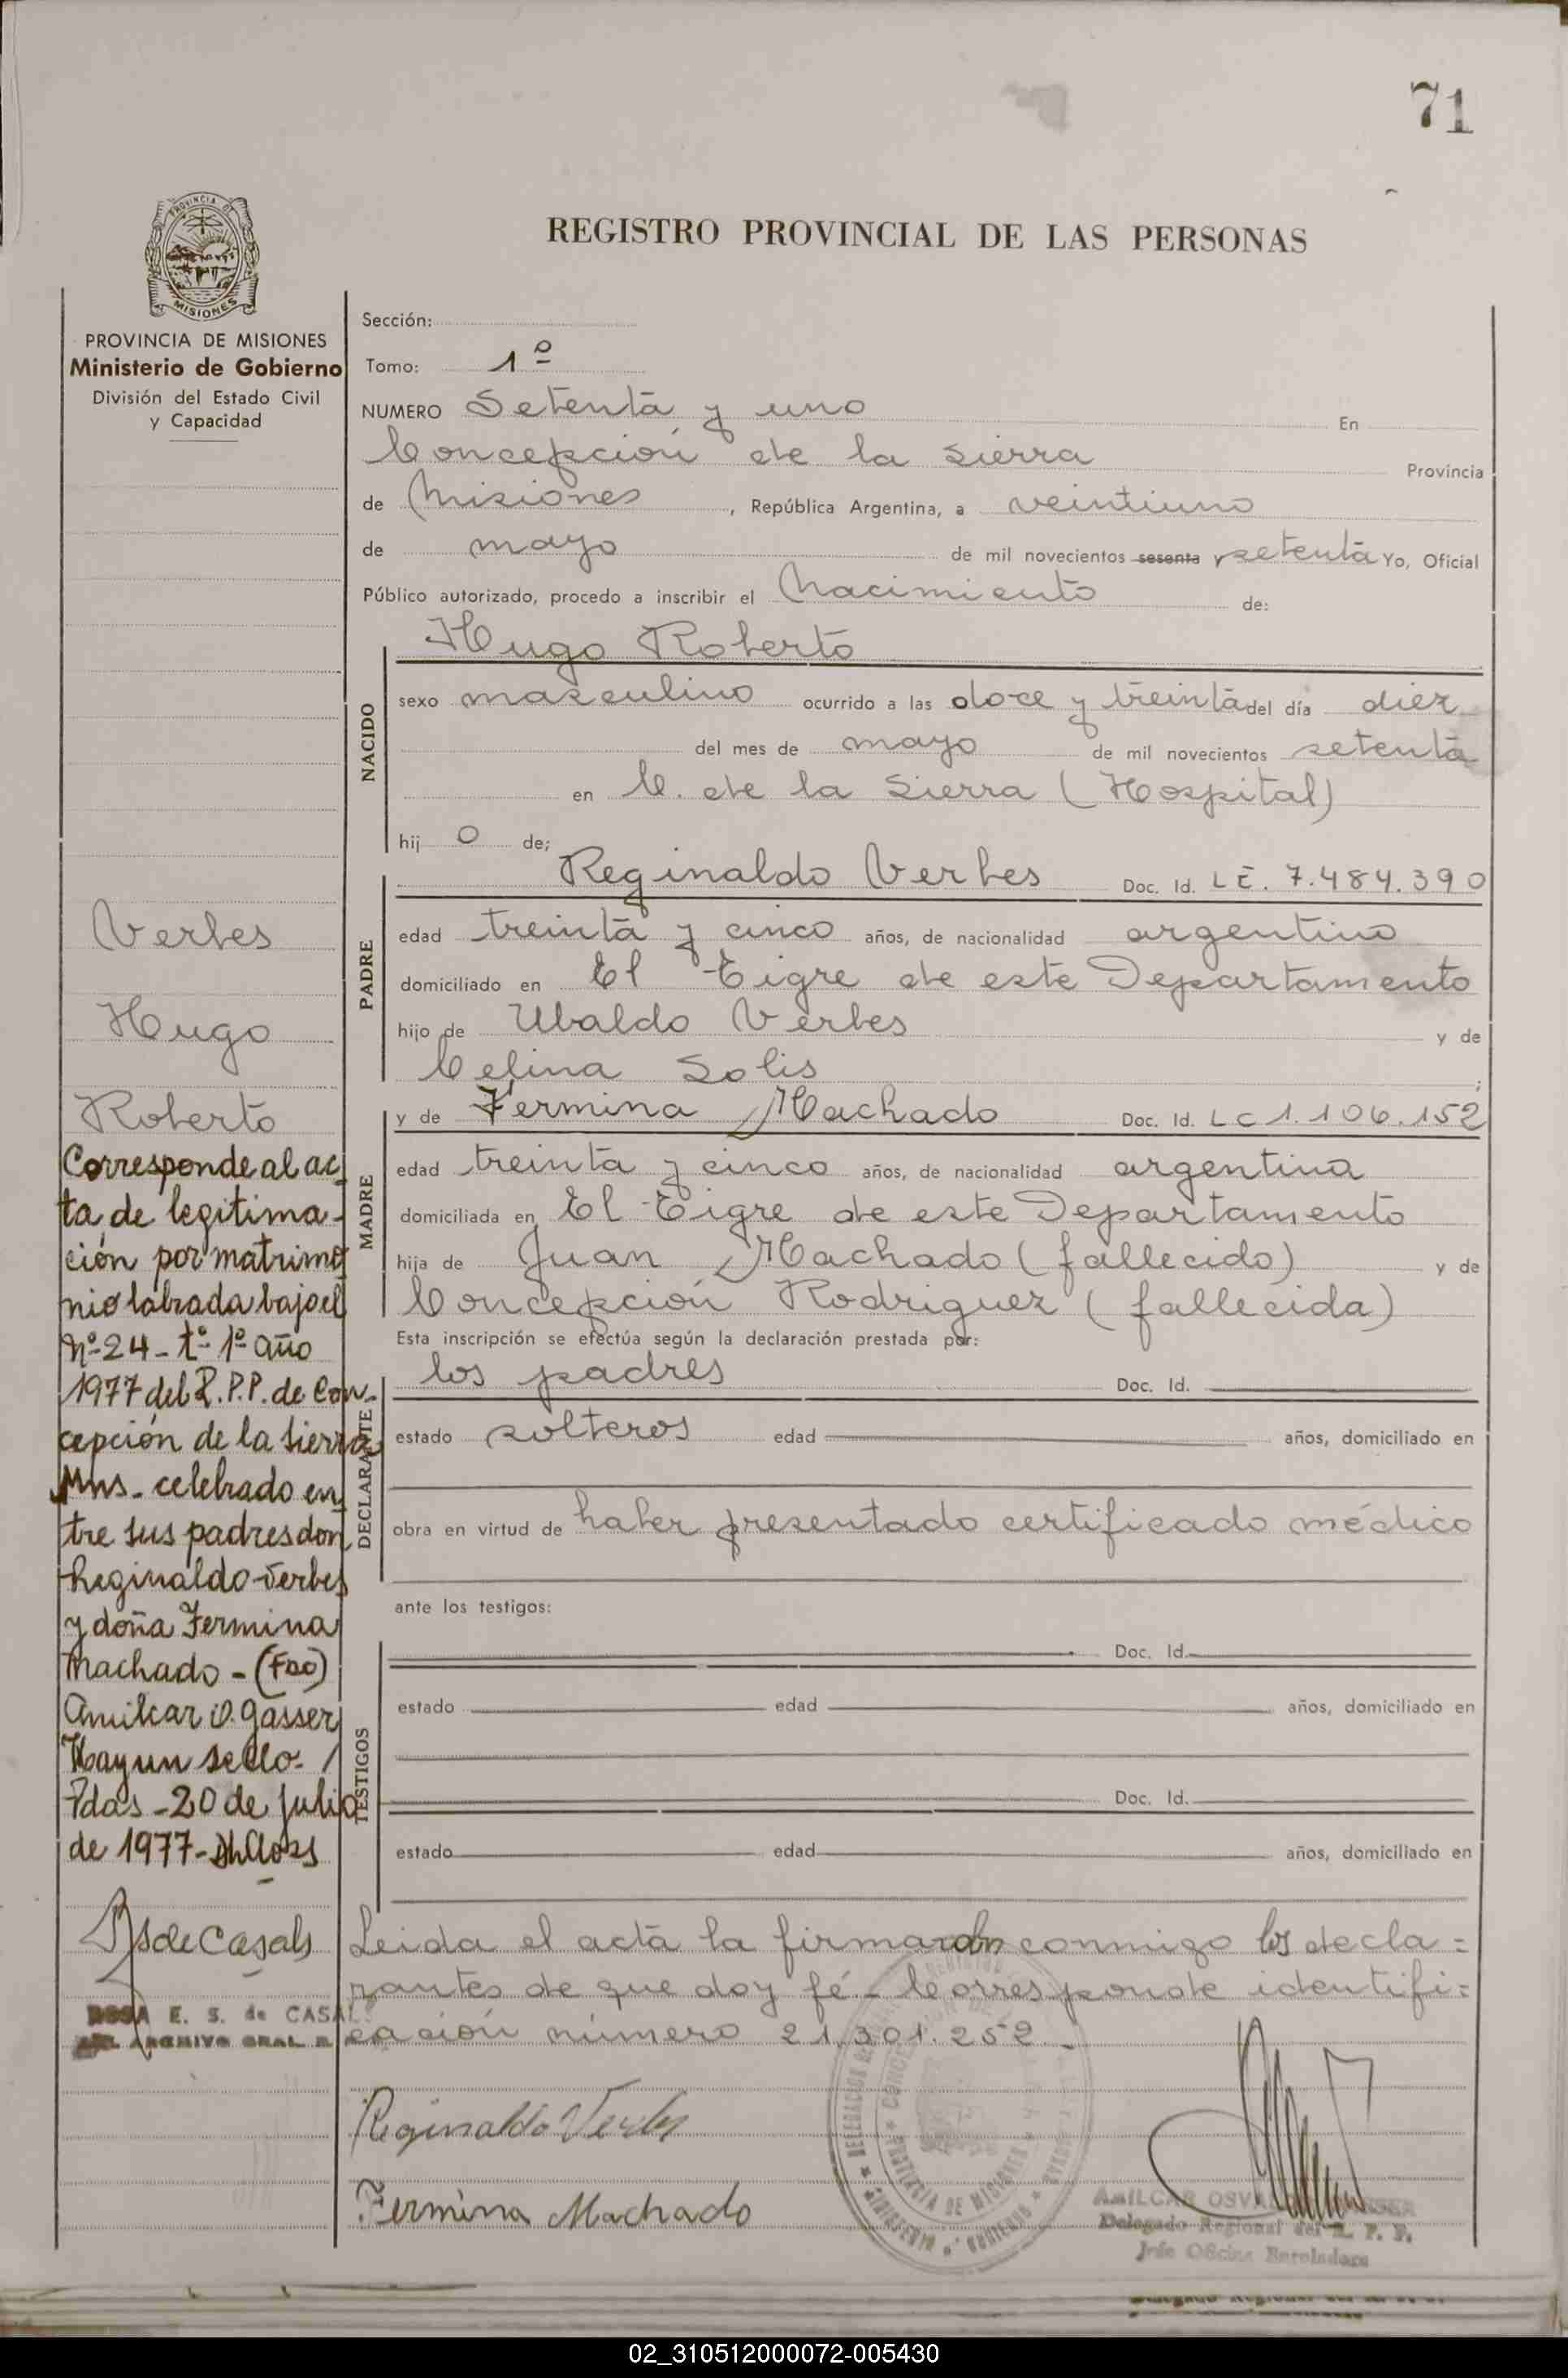 71
REGISTRO PROVINCIAL DE LAS PERSONAS
PROVINCIA DE
MISIONES
PROVINCIA DE MISIONES
Ministerio de Gobierno
División del Estado Civil
y Capacidad
Verbes
Hugo
Roberto
Corresponde al ac
ta de legitima-
ción por matrimo
nio labrada bajo el
Nº 24 - tº 1º año
1977 del R.P.P. de Con-
cepción de la Sierra
Mns. celebrado en
tre sus padres don
Reginaldo Verbes
y doña Fermina
Machado - (Fdo)
Amilcar O. Gasser
Hay un sello. /
Pdas - 20 de julio
de 1977 -
E. S. de CASALS
ARCHIVO GRAL. R.
Sección:
Tomo: 1º
NUMERO Setenta y uno En
Concepción de la Sierra Provincia
de Misiones, República Argentina, a veintiuno
de mayo de mil novecientos sesenta y setenta Yo, Oficial
Público autorizado, procedo a inscribir el Nacimiento de:
Hugo Roberto
NACIDO
sexo masculino ocurrido a las doce y treinta del día diez
del mes de mayo de mil novecientos setenta
en C. de la Sierra (Hospital)
hij o de;
Reginaldo Verbes Doc. Id. LE. 7.484.390
PADRE
edad treinta y cinco años, de nacionalidad argentino
domiciliado en El Tigre de este Departamento
hijo de Ubaldo Verbes y de
Celina Solis ;
y de Fermina Machado Doc. Id. LC 1.106.152
MADRE
edad treinta y cinco años, de nacionalidad argentina
domiciliada en El Tigre de este Departamento
hija de Juan Machado (fallecido) y de
Concepción Rodriguez (fallecida)
Esta inscripción se efectúa según la declaración prestada por:
los padres Doc. Id.
DECLARANTE
estado solteros edad años, domiciliado en
obra en virtud de haber presentado certificado médico
ante los testigos:
TESTIGOS
Doc. Id.
estado edad años, domiciliado en
Doc. Id.
estado edad años, domiciliado en
Leida el acta la firmaron conmigo los decla=
rantes de que doy fé - Corresponde identifi=
cación número 21.301.252.-
Reginaldo Verbes
Fermina Machado
PROVINCIA DE MISIONES
AMILCAR OSVALDO GASSER
Delegado Regional del R. P. P.
Jefe Oficina Enroladora
02_310512000072-005430